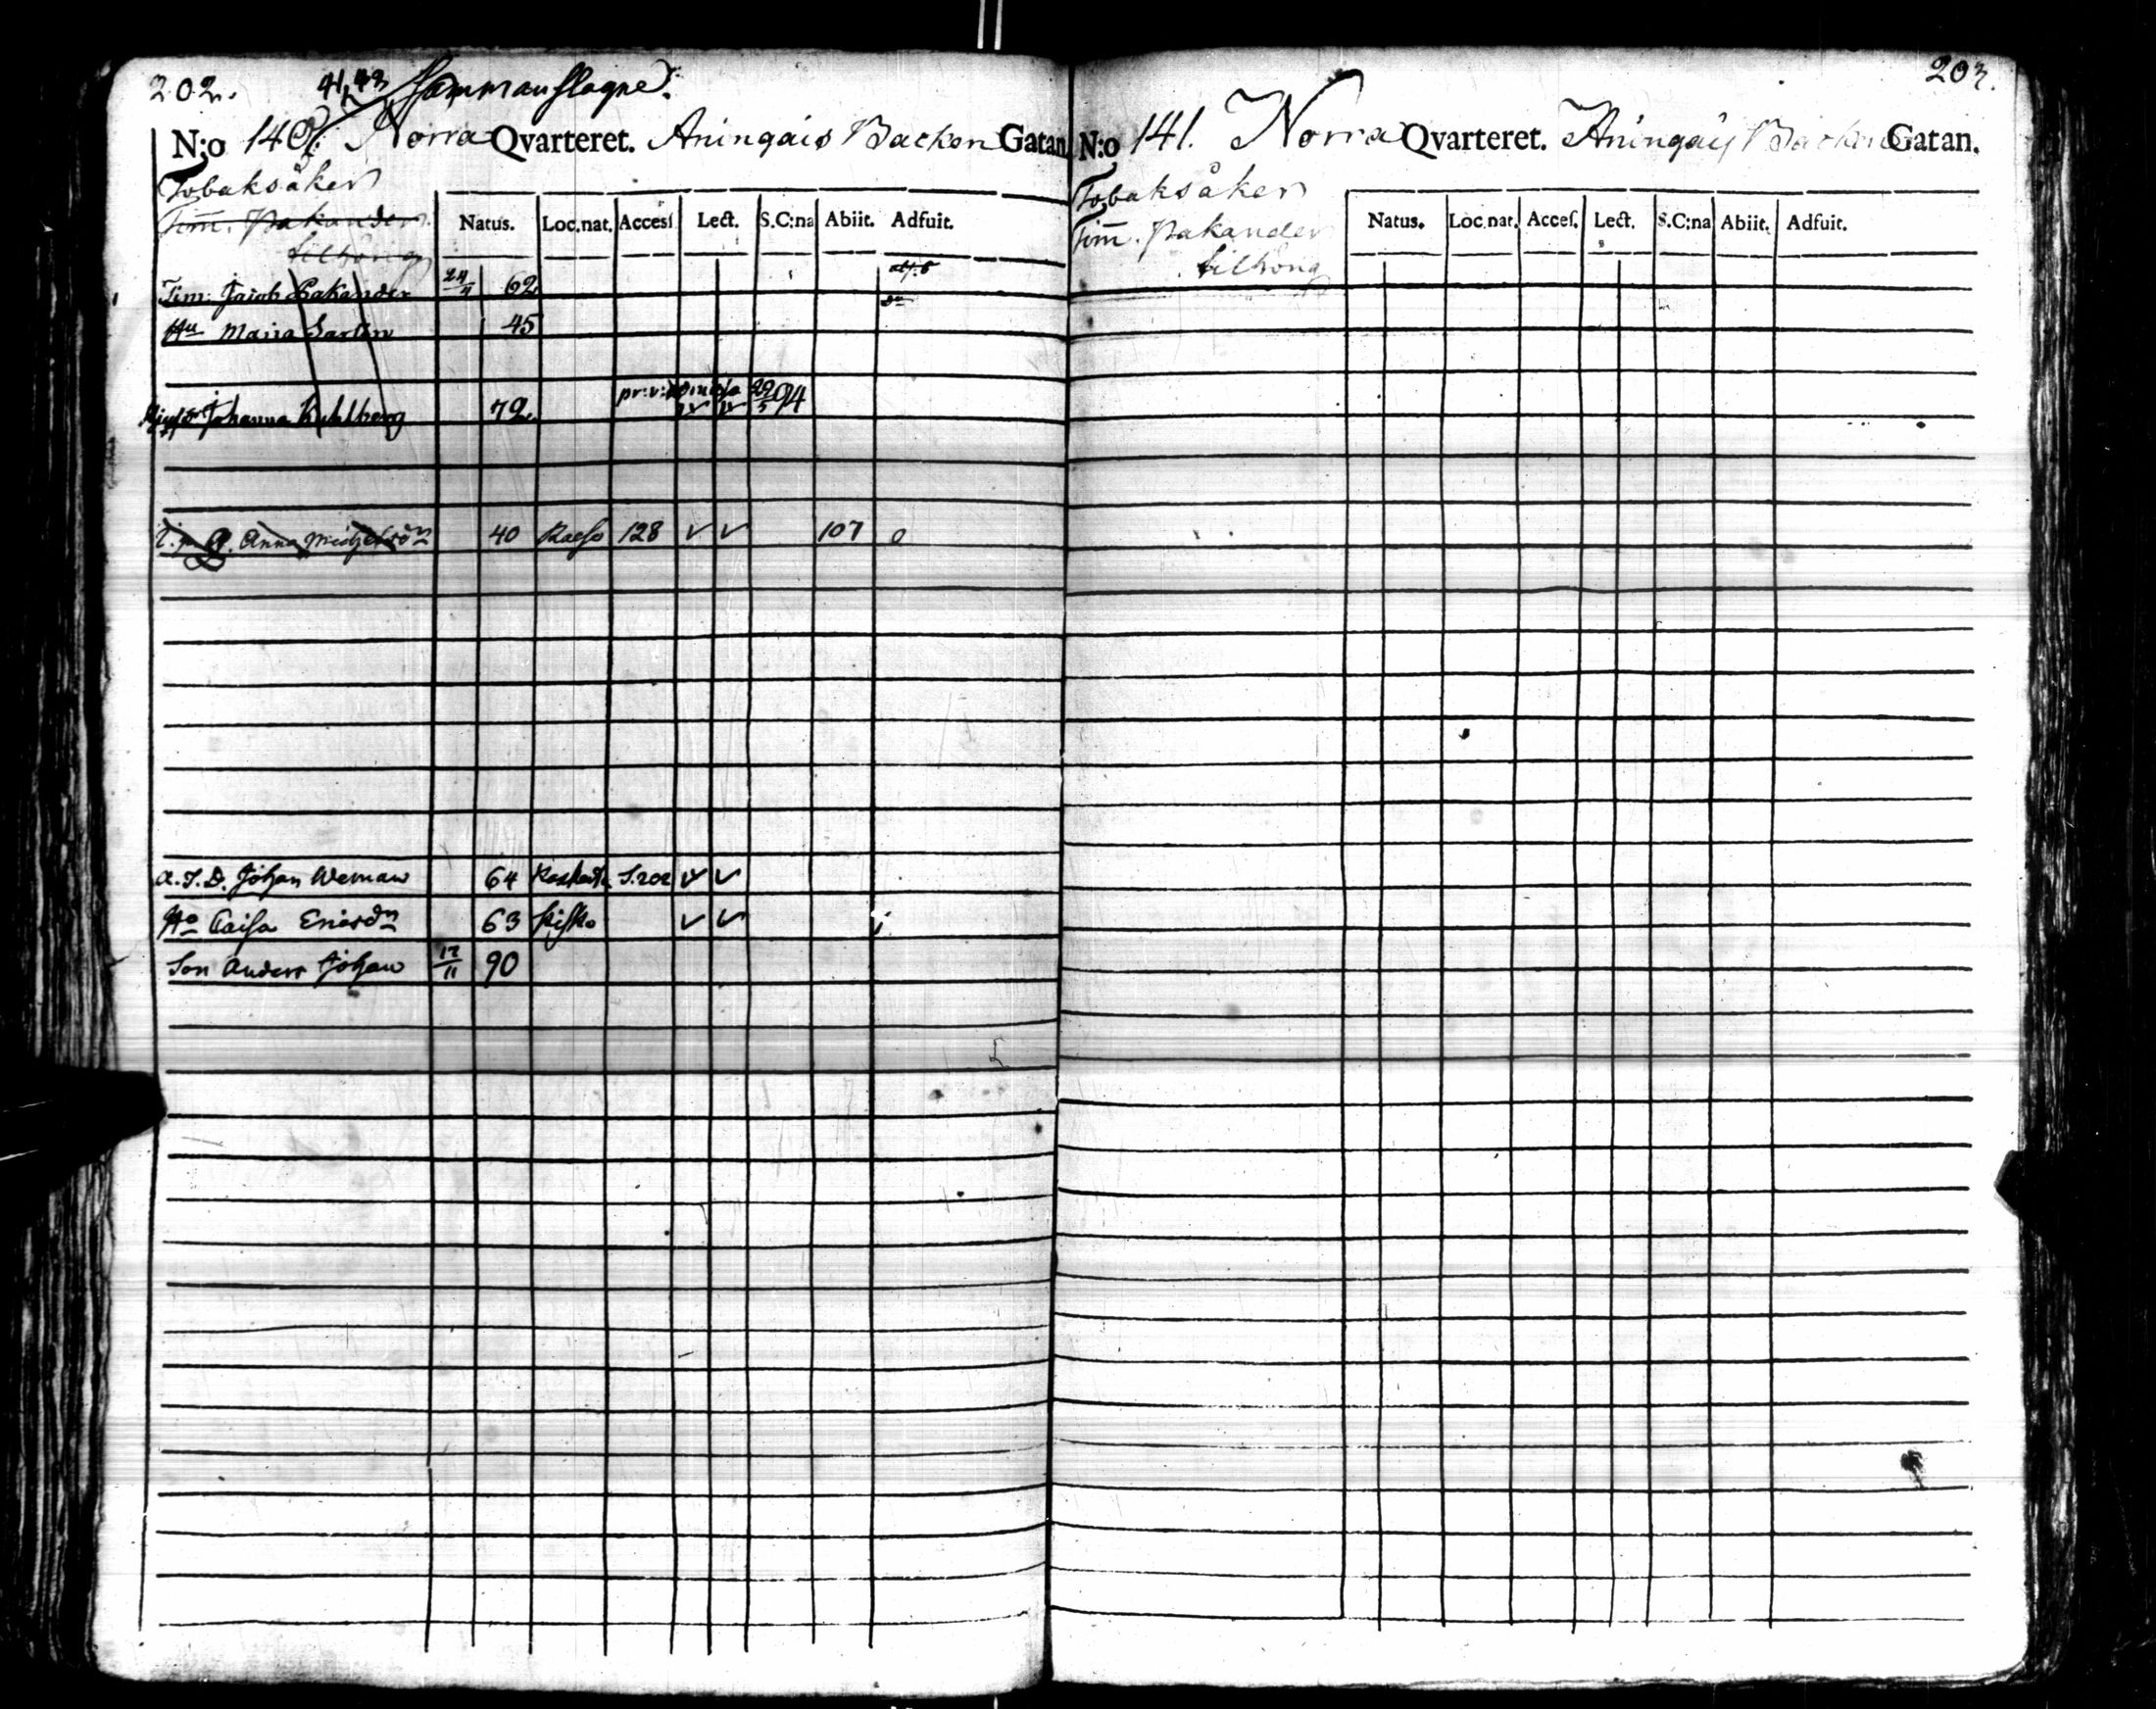 202.
41, 43 Sammanslagne.
N:o 140. Norra Qvarteret. Aningais Backen Gatan.
Tobaksåker
Tim. Pakander
tilhörig
Natus. Loc.nat. Access Lect. S.C:na Abiit. Adfuit.
Tim. Jacob Pakander 24/4 62
Hu Maria Sartin 45
Johanna Kuhlberg 72 29/5 94
Anna 40 128 v v 107 0
A.S.D. Johan Weman 64 S.202 v v
Ho Caisa Ericsdr 63 Kisko v v
Son Anders Johan 12/11 90
203.
N:o 141. Norra Qvarteret. Aningais Backen Gatan.
Tobaksåker
Tim. Pakander
tilhörig
Natus. Loc.nat. Acces. Lect. S.C:na Abiit. Adfuit.